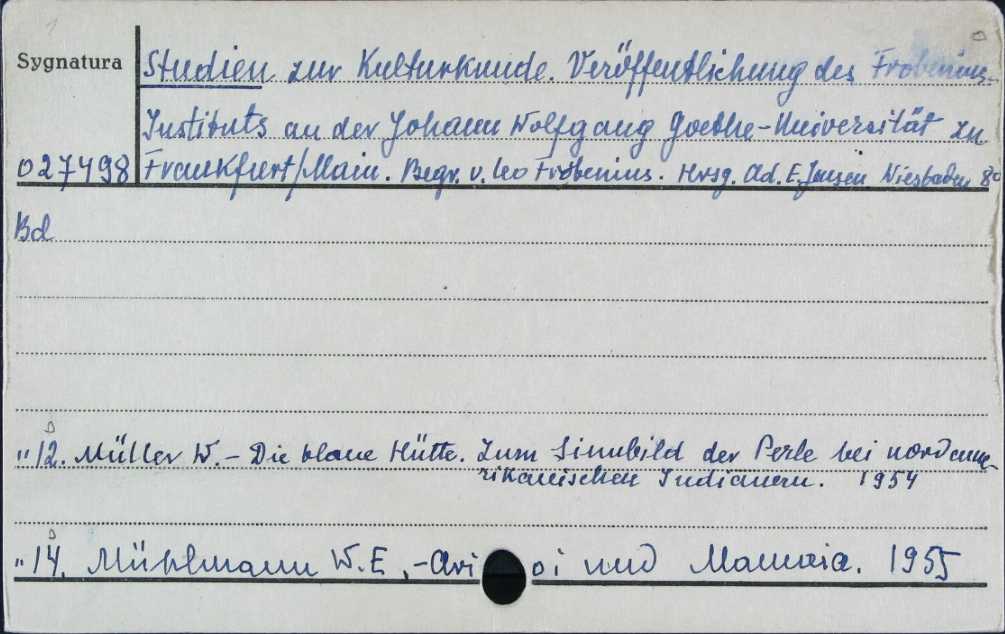 1
Sygnatura Studien zur Kulturkunde. Veröffentlichung des Frobenius-
Instituts an der Johann Wolfgang Goethe-Universität zu
027498 Frankfurt/Main. Begr. v. Leo Frobenius. Hrsg. Ad. E. Jensen Wiesbaden 8°
Bd
"12. Müller W. - Die blaue Hütte. Zum Sinnbild der Perle bei nordame-
rikanischen Indianern. 1954
"14. Mühlmann W. E., - Arioi und Mamaia. 1955